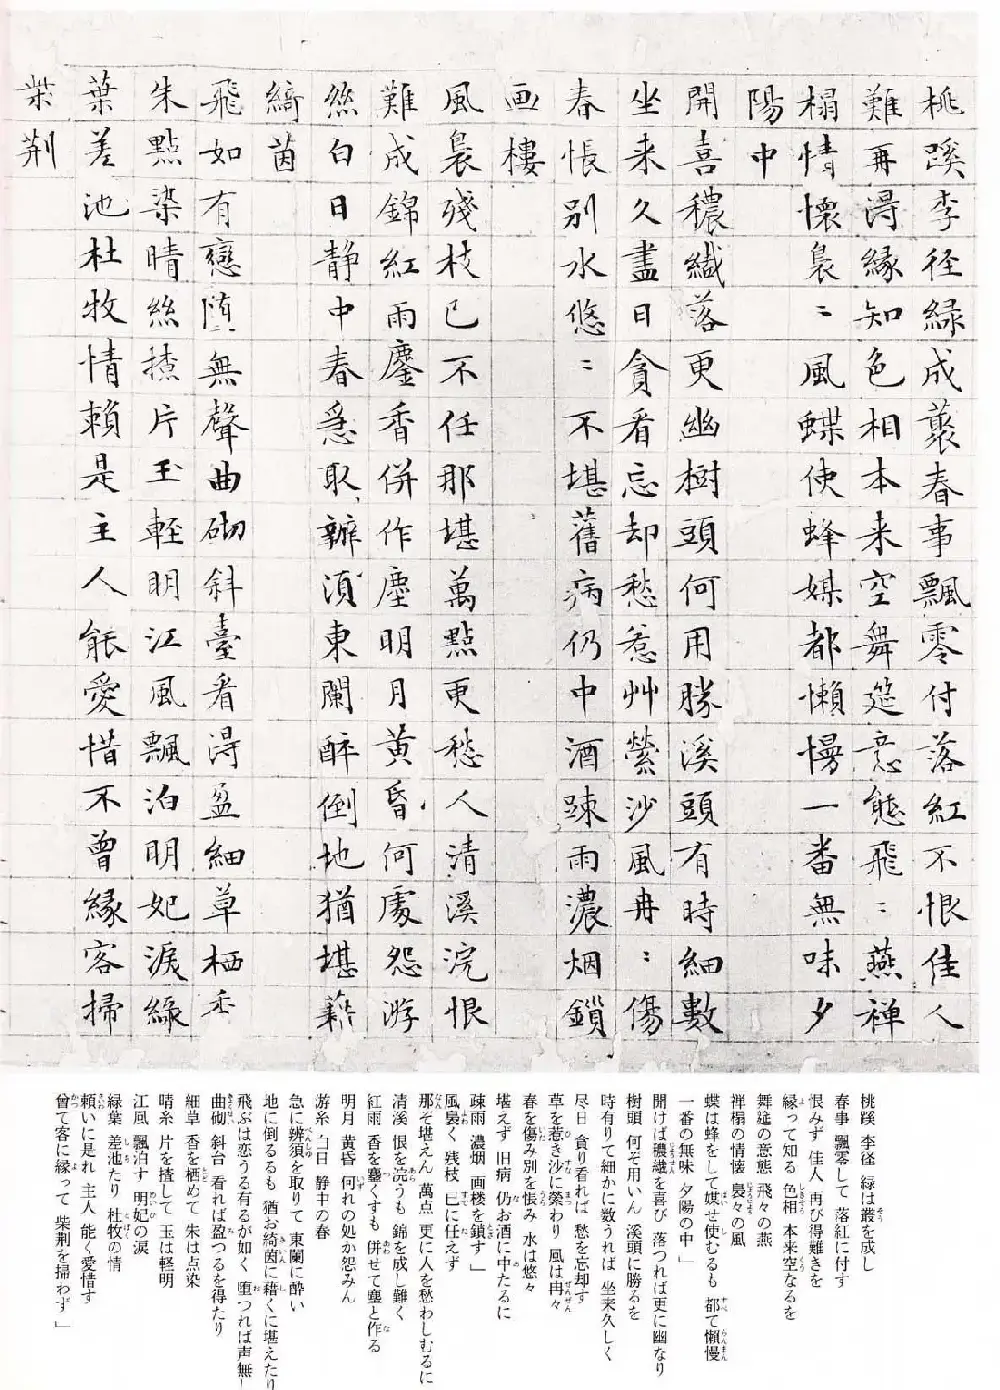 桃蹊李径緑成藂春事飄零付落紅不恨佳人
難再得縁知色相本来空舞筵意態飛〻燕禅
榻情懐裊〻風蝶使蜂媒都懶慢一番無味夕
陽中
開喜穠繊落更幽樹頭何用勝溪頭有時細數
坐来久盡日貪看忘却愁惹艸縈沙風冉〻傷
春悵別水悠〻不堪舊病仍中酒踈雨濃烟鎖
画樓
風裊残枝已不任那堪萬點更愁人清溪浣恨
難成錦紅雨鏖香併作塵明月黄昏何處怨游
絲白日静中春急取辦湏東闌醉倒地猶堪藉
綺茵
飛如有戀堕無聲曲砌斜臺看得盈細草栖香
朱點染晴絲揸片玉軽明江風飄泊明妃淚緑
葉差池杜牧情頼是主人能愛惜不曾縁客掃
柴荆
桃蹊 李径 緑は叢を成し
春事 飄零して 落紅に付す
恨みず 佳人 再び得難きを
縁って知る 色相 本来空なるを
舞筵の意態 飛々の燕
禅榻の情懐 裊々の風
蝶は蜂をして媒せ使むるも 都て懶慢
一番の無味 夕陽の中」
開けば穠繊を喜び 落つれば更に幽なり
樹頭 何ぞ用いん 溪頭に勝るを
時有りて細かに数うれば 坐来久しく
尽日 貪り看れば 愁を忘却す
草を惹き沙に縈わり 風は冉々
春を傷み別を悵み 水は悠々
堪えず 旧病 仍お酒に中たるに
疎雨 濃烟 画楼を鎖す」
風裊く 残枝 已に任えず
那ぞ堪えん 萬点 更に人を愁わしむるに
清溪 恨を浣うも 錦を成し難く
紅雨 香を鏖くすも 併せて塵と作る
明月 黄昏 何れの処か怨みん
游糸 白日 静中の春
急に辨須を取りて 東闌に酔い
地に倒るるも 猶お綺茵に藉くに堪えたり
飛ぶは恋うる有るが如く 堕つれば声無し
曲砌 斜台 看れば盈つるを得たり
細草 香を栖めて 朱は点染
晴糸 片を揸して 玉は軽明
江風 飄泊す 明妃の涙
緑葉 差池たり 杜牧の情
頼いに是れ 主人 能く愛惜す
曾て客に縁って 柴荆を掃わず」